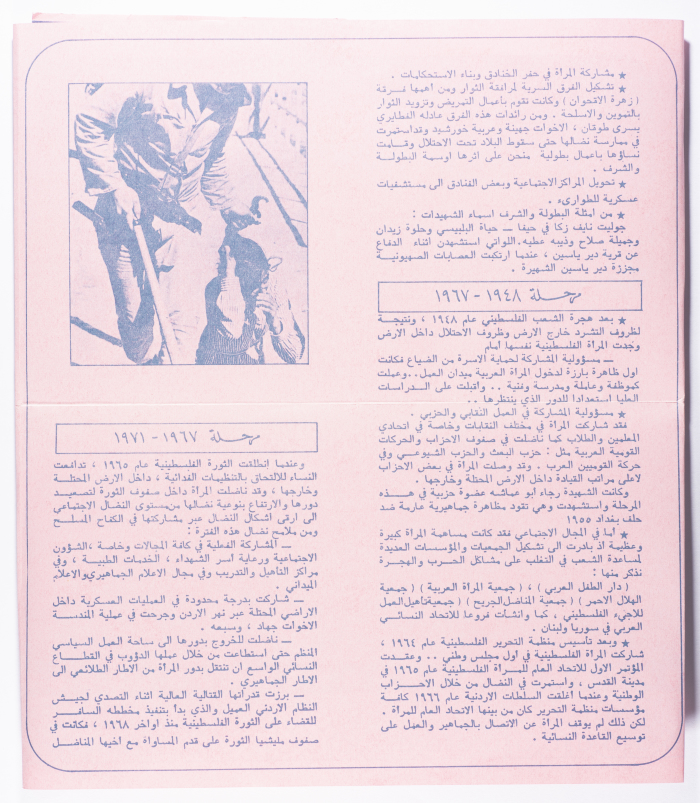 ★ مشاركة المرأة في حفر الخنادق وبناء الاستحكامات .
★ تشكيل الفرق السرية لمرافقة الثوار ومن أهمها فرقة
( زهرة الاقحوان ) وكانت تقوم بأعمال التمريض وتزويد الثوار
بالتموين والاسلحة . ومن رائدات هذه الفرق عادله الفطايري
يسرى طوقان ، الاخوات جهينة وعربية خورشيد وقد استمرت
في ممارسة نضالها حتى سقوط البلاد تحت الاحتلال وقامت
نساؤها بأعمال بطولية منحن على أثرها أوسمة البطولة
والشرف .
★ تحويل المراكز الاجتماعية وبعض الفنادق الى مستشفيات
عسكرية للطوارىء .
★ من أمثلة البطولة والشرف أسماء الشهيدات :
جوليت نايف زكا في حيفا — حياة البلبيسي وحلوة زيدان
وجميلة صلاح وذيبه عطيه، اللواتي استشهدن أثناء الدفاع
عن قرية دير ياسين ، عندما ارتكبت العصابات الصهيونية
مجزرة دير ياسين الشهيرة .
مرحلة ١٩٤٨ - ١٩٦٧
★ بعد هجرة الشعب الفلسطيني عام ١٩٤٨ ، ونتيجة
لظروف التشرد خارج الارض وظروف الاحتلال داخل الارض
وجدت المرأة الفلسطينية نفسها أمام
— مسؤولية المشاركة لحماية الاسرة من الضياع فكانت
أول ظاهرة بارزة لدخول المرأة العربية ميدان العمل..وعملت
كموظفة وعاملة ومدرسة وفنية .. وأقبلت على الدراسات
العليا استعدادا للدور الذي ينتظرها ..
★ مسؤولية المشاركة في العمل النقابي والحزبي .
فقد شاركت المرأة في مختلف النقابات وخاصة في اتحادي
المعلمين والطلاب كما ناضلت في صفوف الاحزاب والحركات
القومية العربية مثل : حزب البعث والحزب الشيوعي وفي
حركة القوميين العرب . وقد وصلت المرأة في بعض الاحزاب
لاعلى مراتب القيادة داخل الارض المحتلة وخارجها .
وكانت الشهيدة رجاء أبو عماشه عضوة حزبية في هذه
المرحلة واستشهدت وهي تقود مظاهرة جماهيرية عارمة ضد
حلف بغداد ١٩٥٥
★ أما في المجال الاجتماعي فقد كانت مساهمة المرأة كبيرة
وعظيمة اذ بادرت الى تشكيل الجمعيات والمؤسسات العديدة
لمساعدة الشعب في التغلب على مشاكل الحرب والهجرة
نذكر منها :
( دار الطفل العربي ) ، ( جمعية المرأة العربية ) ( جمعية
الهلال الاحمر ) ( جمعية المناضل الجريح ) ( جمعية تأهيل العمل
للاجيء الفلسطيني ، كما وأنشأت فروعا للاتحاد النسائي
العربي في سوريا ولبنان .
★ وبعد تأسيس منظمة التحرير الفلسطينية عام ١٩٦٤ ،
شاركت المرأة الفلسطينية في أول مجلس وطني .. وعقدت
المؤتمر الاول للاتحاد العام للمرأة الفلسطينية عام ١٩٦٥ في
مدينة القدس ، واستمرت في النضال من خلال الاحزاب
الوطنية وعندما أغلقت السلطات الاردنية عام ١٩٦٦ كافة
مؤسسات منظمة التحرير كان من بينها الاتحاد العام للمرأة .
لكن ذلك لم يوقف المرأة عن الاتصال بالجماهير والعمل على
توسيع القاعدة النسائية .
مرحلة ١٩٦٧ - ١٩٧١
وعندما انطلقت الثورة الفلسطينية عام ١٩٦٥ ، تدافعت
النساء للالتحاق بالتنظيمات الفدائية ، داخل الارض المحتلة
وخارجها ، وقد ناضلت المرأة داخل صفوف الثورة لتصعيد
دورها والارتفاع بنوعية نضالها من مستوى النضال الاجتماعي
الى أرقى أشكال النضال عبر مشاركتها في الكفاح المسلح
ومن ملامح نضال هذه الفترة :
— المشاركة الفعلية في كافة المجالات وخاصة ، الشؤون
الاجتماعية ورعاية أسر الشهداء ، الخدمات الطبية ، وفي
مراكز التأهيل والتدريب وفي مجال الاعلام الجماهيري والاعلام
الميداني .
— شاركت بدرجة محدودة في العمليات العسكرية داخل
الاراضي المحتلة عبر نهر الاردن وجرحت في عملية المندسة
الاخوات جهاد ، وسبعه .
— ناضلت للخروج بدورها الى ساحة العمل السياسي
المنظم حتى استطاعت من خلال عملها الدؤوب في القطاع
النسائي الواسع ان تنتقل بدور المرأة من الاطار الطلائعي الى
الاطار الجماهيري .
— برزت قدراتها القتالية العالية أثناء التصدي لجيش
النظام الاردني العميل والذي بدأ بتنفيذ مخططه السافر
للقضاء على الثورة الفلسطينية منذ أواخر ١٩٦٨ ، فكانت في
صفوف مليشيا الثورة على قدم المساواة مع أخيها المناضل